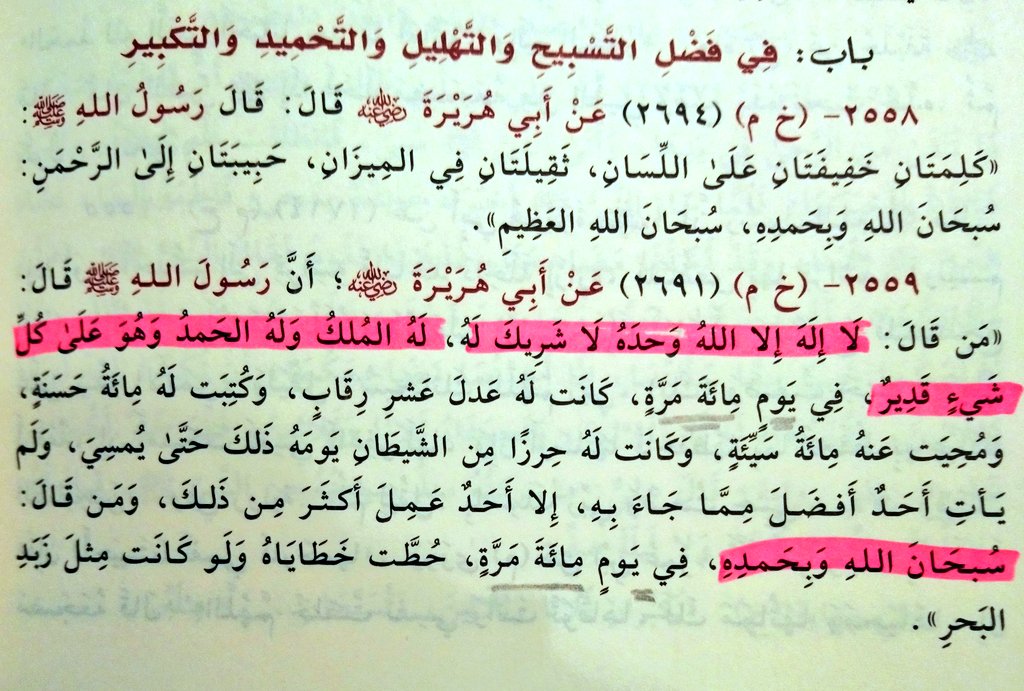 بـاب: فِي فَضْلِ التَّسْبِيحِ وَالتَّهْلِيلِ وَالتَّحْمِيدِ وَالتَّكْبِيرِ
٢٥٥٨- (خ م) (٢٦٩٤) عَنْ أَبِي هُرَيْرَةَ رضي الله عنه قَالَ: قَالَ رَسُولُ اللهِ ﷺ:
«كَلِمَتَانِ خَفِيفَتَانِ عَلَىٰ اللِّسَانِ، ثَقِيلَتَانِ فِي المِيزَانِ، حَبِيبَتَانِ إِلَىٰ الرَّحْمَنِ:
سُبحَانَ اللهِ وَبِحَمدِهِ، سُبحَانَ اللهِ العَظِيمِ».
٢٥٥٩- (خ م) (٢٦٩١) عَنْ أَبِي هُرَيْرَةَ رضي الله عنه؛ أَنَّ رَسُولَ اللهِ ﷺ قَالَ:
«مَن قَالَ: لَا إِلَهَ إِلا اللهُ وَحدَهُ لَا شَرِيكَ لَهُ، لَهُ المُلكُ وَلَهُ الحَمدُ وَهُوَ عَلَىٰ كُلِّ
شَيءٍ قَدِيرٌ، فِي يَومٍ مِائَةَ مَرَّةٍ، كَانَت لَهُ عَدلَ عَشرِ رِقَابٍ، وَكُتِبَت لَهُ مِائَةُ حَسَنَةٍ،
وَمُحِيَت عَنهُ مِائَةُ سَيِّئَةٍ، وَكَانَت لَهُ حِرزًا مِن الشَّيطَانِ يَومَهُ ذَلكَ حَتَّىٰ يُمسِيَ، وَلَم
يَأتِ أَحَدٌ أَفضَلَ مِمَّا جَاءَ بِهِ، إِلا أَحَدٌ عَمِلَ أَكثَرَ مِن ذَلكَ، وَمَن قَالَ:
سُبحَانَ اللهِ وَبِحَمدِهِ، فِي يَومٍ مِائَةَ مَرَّةٍ، حُطَّت خَطَايَاهُ وَلَو كَانَت مِثلَ زَبَدِ
البَحرِ».